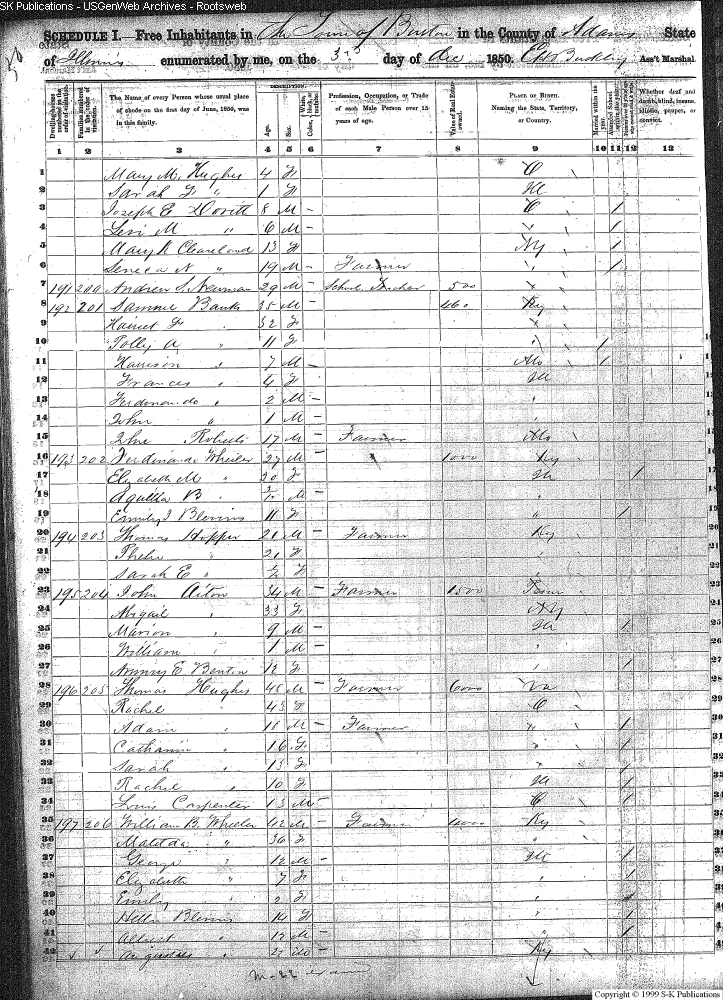 SK Publications - USGenWeb Archives - Rootsweb
SCHEDULE I.—Free Inhabitants in The Town of Burton in the County of Adams State
of Illinois enumerated by me, on the 3rd day of Dec 1850. Ass't Marshal.
Dwelling-houses numbered in the order of visitation.
Families numbered in the order of visitation.
The Name of every Person whose usual place of abode on the first day of June, 1850, was in this family.
DESCRIPTION.
Age.
Sex.
Color, White, black, or mulatto.
Profession, Occupation, or Trade of each Male Person over 15 years of age.
Value of Real Estate owned.
PLACE OF BIRTH. Naming the State, Territory, or Country.
Married within the year.
Whether deaf and dumb, blind, insane, idiotic, pauper, or convict.
1 2 3 4 5 6 7 8 9 10 11 12 13
1 Mary M. Hughes 4 F O
2 Sarah F " 1 F Ill
3 Joseph E 8 M - O 1
4 Levi M " 6 M - " 1
5 Mary K Cleaveland 13 F NY 1
6 Seneca N " 19 M - Farmer " 1
7 191 200 Andrew S. Newman 29 M - School Teacher 500 "
8 192 201 Samuel Banks 35 M - 460 Ky
9 Harriet F " 32 F "
10 Polly A " 11 F " 1
11 Harrison " 7 M - Mo 1
12 Frances " 4 F Ill
13 Ferdinando " 2 M - "
14 John " 1 M - "
15 John Roberts 17 M - Farmer Mo
16 193 202 Ferdinando Wheeler 27 M - " 1000 Ky
17 Elizabeth M " 20 F Ill 1
18 Aquilla B " M - "
19 Emily J Blevins 11 F " 1
20 194 203 Thomas Hopper 21 M - Farmer Ky
21 " 21 F "
22 Sarah E " F "
23 195 204 John Aiton 34 M - Farmer 1500 Tenn
24 Abigail " 33 F NY
25 Marion " 9 M - Ill 1
26 William " 1 M - "
27 E Benton 12 F " 1
28 196 205 Thomas Hughes 45 M - Farmer 6000 Va
29 Rachel " 43 F O
30 Adam " 18 M - Farmer " 1
31 Catharine " 16 F " 1
32 Sarah " 13 F " 1
33 Rachel " 10 F Ill 1
34 Louis Carpenter 13 M - O 1
35 197 206 William B. Wheeler 42 M - Farmer Ky
36 Matilda " 36 F "
37 George " 12 M - Ill 1
38 Elizabeth " 7 F " 1
39 Emily " 2 F "
40 Blevins 14 F " 1
41 Albert " 12 M - " 1
42 " 21 M - Ky
Copyright © 1999 S-K Publications